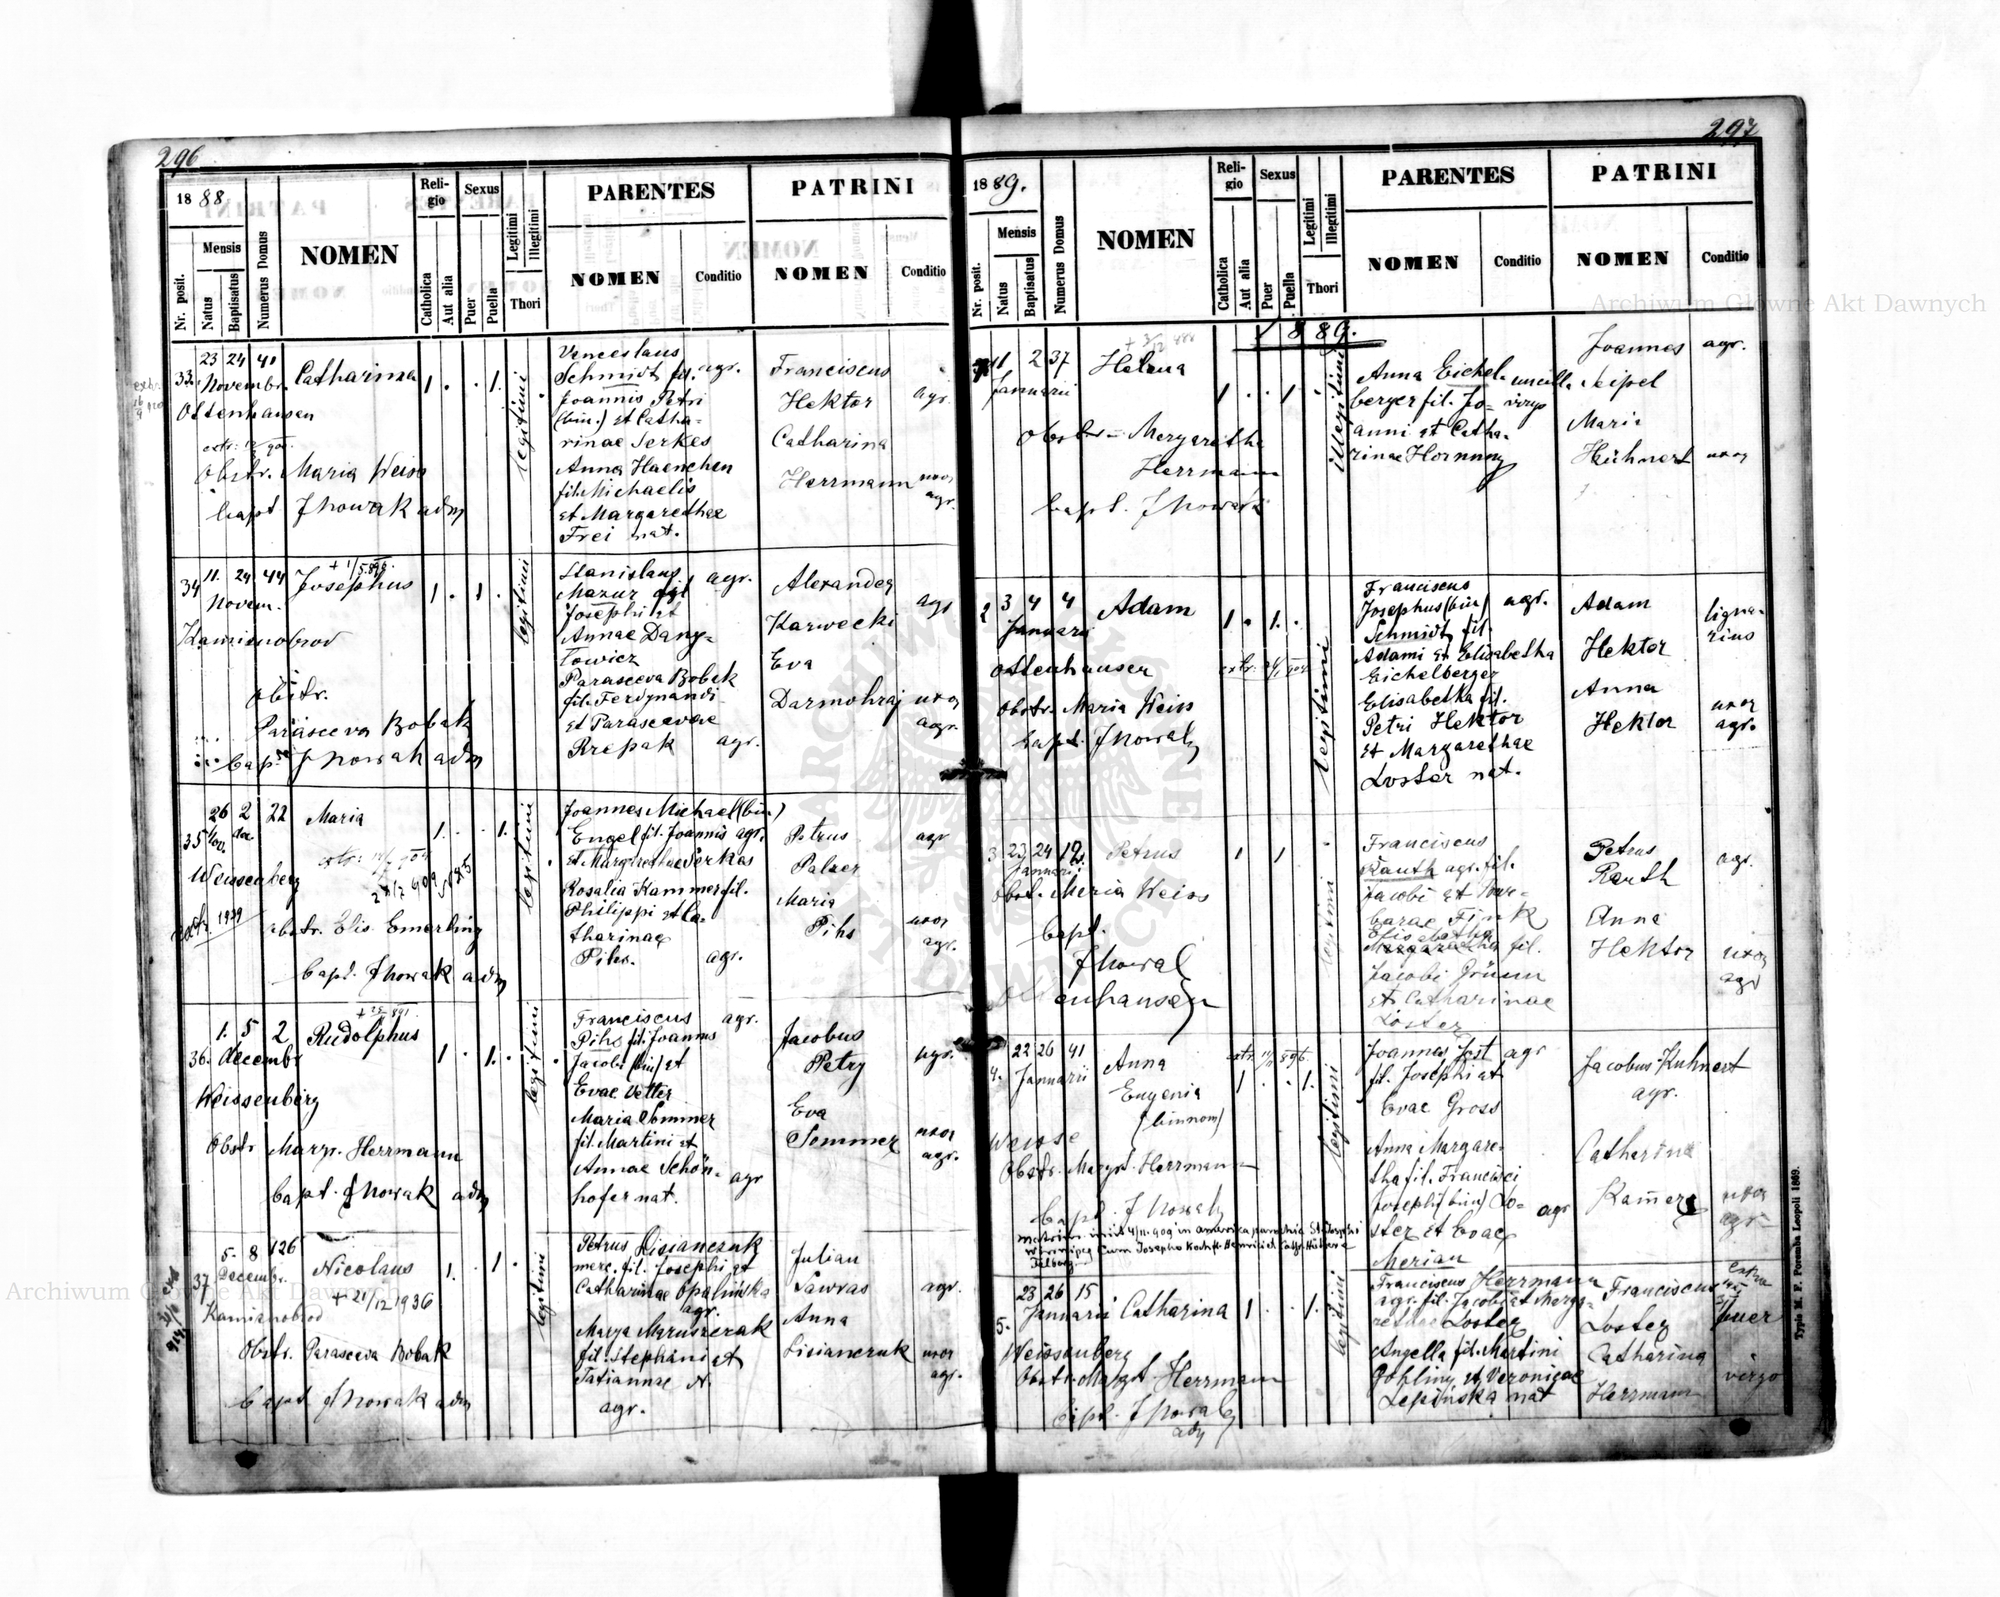 296
1888
Nr. posit.
Mensis
Natus
Baptisatus
Numerus Domus
NOMEN
Religio
Catholica
Aut alia
Sexus
Puer
Puella
Legitimi
Illegitimi
Thori
PARENTES
NOMEN
Conditio
PATRINI
NOMEN
Conditio
33. 23 24 41
Novembr. Catharina 1 . . 1.
Ottenhausen
Obstr. Maria Weiss
bapt. J Nowak adm
legitimi
Venceslaus
Schmidt fil. agr.
Joannis Petri
(bin.) et Catha-
rinae Serkes
Anna Haenchen
fil. Michaelis
et Margarethae
Frei nat.
Franciscus
Hektor agr.
Catharina
Herrmann uxor
agr.
34 11. 24 44 Josephus 1 . 1 .
Novem.
Kamienobrod
obstr.
Parasceva Bobak
bapt. J Nowak adm
legitimi
Stanislaus agr.
Mazur fil
Josephi et
Annae Dany-
lowicz
Parasceva Bobek
fil. Ferdynandi
et Parascevae
Krepak agr.
Alexander agr
Karwecki
Eva
Darmohraj uxor
agr.
35 26 2 22 Maria 1. . . 1.
Nov. dec
Weissenberg
obstr. Elis. Emerling
bapt. J Nowak adm
legitimi
Joannes Michael (bin)
Engel fil. Joannis agr.
et Margarethae Serkes
Rosalia Kammer fil.
Philippi et Ca-
tharinae
Pihs. agr.
Petrus agr
Palzer
Maria
Pihs uxor
agr.
36. 1. 5 2 Rudolphus 1 . 1. .
decembr
Weissenberg
Obstr Marg. Herrmann
bapt. J Nowak adm
legitimi
Franciscus agr.
Pihs fil. Joannis
Jacobi (bin) et
Evae Vetter
Maria Sommer
fil. Martini et
Annae Schön-
hofer nat. agr
Jacobus
Petry agr.
Eva
Sommer uxor
agr.
37 5. 8 126 Nicolaus 1. . 1 .
Decembr.
+ 21/12 1936
Kamianobrod
Obstr. Parasceva Bobak
bapt J Nowak adm
legitimi
Petrus Lisianczuk
merc. fil. Josephi et
Catharinae Opalinska
agr.
Marya Maruszczak
fil. Stephani et
Tatiannae N.
agr.
Julian
Sawras agr.
Anna
Lisianczuk uxor
agr.
297
1889.
Nr. posit.
Mensis
Natus
Baptisatus
Numerus Domus
NOMEN
Religio
Catholica
Aut alia
Sexus
Puer
Puella
Legitimi
Illegitimi
Thori
PARENTES
NOMEN
Conditio
PATRINI
NOMEN
Conditio
1889.
1 2 37 Helena 1 . . 1
Januarii
Obstr. Margaretha
Herrmann
bapt. J Nowak
illegitimi
Anna Eichel- ancilla
berger fil. Jo- virgo
anni et Catha-
rinae Hornung
Joannes agr.
Seipel
Maria
Hühnert uxor
2 3 4 4 Adam 1 . 1. .
Januarii
Ottenhausen
Obstr. Maria Weiss
bapt. J Nowak
legitimi
Franciscus
Josephus (bin) agr.
Schmidt fil.
Adami et Elisabetha
Eichelberger
Elisabetha fil.
Petri Hektor
et Margarethae
Loster nat.
Adam ligna-
Hektor rius
Anna
Hektor uxor
agr.
3 23 24 12 Petrus 1 1
Januarii
Obst. Maria Weiss
bapt.
J Nowak
Ottenhausen
legitimi
Franciscus
Rauth agr. fil.
Jacobi et Bar-
barae Fink
Elisabetha
Margaretha fil.
Jacobi Grünn
et Catharinae
Loster
Petrus agr.
Rauth
Anna
Hektor uxor
agr
4. 22 26 41 Anna
Januarii Eugenia 1 . . 1.
(binnom)
Weisse
Obstr. Margt. Herrmann
bapt. J Nowak
legitimi
Joannes Jost agr
fil. Josephi et
Evae Gross
Anna Margare-
tha fil. Francisci
Josephi (bin) Lo- agr
ster et Evae
Merian
Jacobus Kuhnert
agr.
Catharina
Kamer uxor
agr
5. 23 26 15
Januarii Catharina 1 . . 1.
Weissenberg
Obstr. Margt. Herrmann
bapt. J Nowak
adm
legitimi
Franciscus Herrmann
agr. fil. Jacobi et Marga-
rethae Loster
Angella fil. Martini
Göhling et Veronicae
Lepinska nat
Franciscus
Loster puer
Catharina
Herrmann virgo
Typis M. F. Poremba Leopoli 1869.
Archiwum Główne Akt Dawnych
Archiwum Główne Akt Dawnych
ARCHIWUM GŁÓWNE AKT DAWNYCH